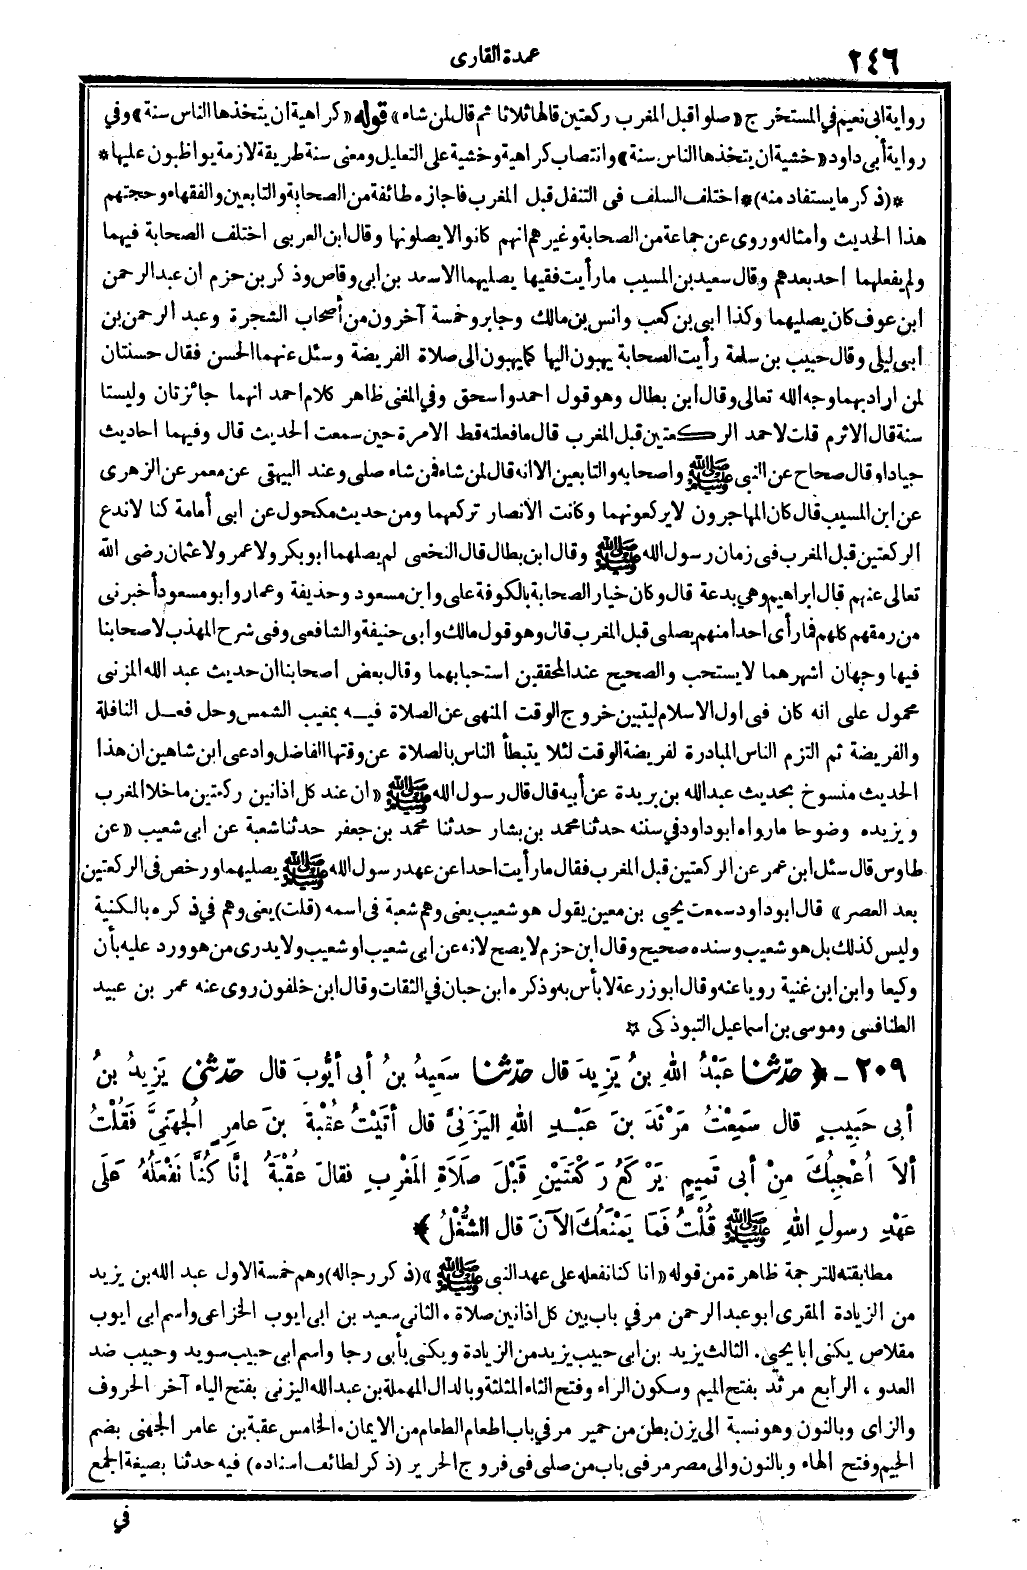 ٢٤٦
عمدة القارى
رواية ابى نعيم في المستخرج «صلوا قبل المغرب ركعتين قالها ثلاثا ثم قال لمن شاء» قوله «كراهية ان يتخذها الناس سنة» وفي
رواية أبى داود «خشية ان يتخذها الناس سنة» وانتصاب كراهية وخشية على التعليل ومعنى سنة طريقة لازمة يواظبون عليها *
*(ذكر ما يستفاد منه)* اختلف السلف فى التنفل قبل المغرب فاجازه طائفة من الصحابة والتابعين والفقهاء وحجتهم
هذا الحديث وامثاله وروى عن جماعة من الصحابة وغيرهم انهم كانوا لا يصلونها وقال ابن العربى اختلف الصحابة فيهما
ولم يفعلهما احد بعدهم وقال سعيد بن المسيب ما رأيت فقيها يصليهما الا سعد بن ابى وقاص وذكر بن حزم ان عبد الرحمن
ابن عوف كان يصليهما وكذا ابى بن كعب وانس بن مالك وجابر وخمسة آخرون من أصحاب الشجرة وعبد الرحمن بن
أبى ليلى وقال حبيب بن سلمة رأيت الصحابة يهبون اليها كما يهبون الى صلاة الفريضة وسئل عنهما الحسن فقال حسنتان
لمن اراد بهما وجه الله تعالى وقال ابن بطال وهو قول احمد واسحق وفي المغنى ظاهر كلام احمد انهما جائزتان وليستا
سنة قال الاثرم قلت لاحمد الركعتين قبل المغرب قال ما فعلته قط الا مرة حين سمعت الحديث قال وفيهما احاديث
جياد او قال صحاح عن النبى ﷺ واصحابه والتابعين الا انه قال لمن شاء فمن شاء صلى وعند البيهقى عن معمر عن الزهرى
عن ابن المسيب قال كان المهاجرون لا يركعونهما وكانت الانصار تركعهما ومن حديث مكحول عن ابى أمامة كنا لا ندع
الركعتين قبل المغرب فى زمان رسول الله ﷺ وقال ابن بطال قال النخعى لم يصلهما ابو بكر ولا عمر ولا عثمان رضى الله
تعالى عنهم قال ابراهيم وهي بدعة قال وكان خيار الصحابة بالكوفة على وابن مسعود وحذيفة وعمار وابو مسعود أخبرنى
من رمقهم كلهم فما رأى احدا منهم يصلى قبل المغرب قال وهو قول مالك وابى حنيفة والشافعى وفى شرح المهذب لاصحابنا
فيها وجهان اشهرهما لا يستحب والصحيح عند المحققين استحبابهما وقال بعض أصحابنا ان حديث عبد الله المزنى
محمول على انه كان فى اول الاسلام ليتبين خروج الوقت المنهى عن الصلاة فيه بمغيب الشمس وحل فعل النافلة
والفريضة ثم التزم الناس المبادرة لفريضة الوقت لئلا يتبطأ الناس بالصلاة عن وقتها الفاضل وادعى ابن شاهين ان هذا
الحديث منسوخ بحديث عبد الله بن بريدة عن أبيه قال قال رسول الله ﷺ «ان عند كل اذانين ركعتين ما خلا المغرب
ويزيده وضوحا ما رواه ابو داود في سننه حدثنا محمد بن بشار حدثنا محمد بن جعفر حدثنا شعبة عن ابى شعيب «عن
طاوس قال سئل ابن عمر عن الركعتين قبل المغرب فقال ما رأيت احدا عن عهد رسول الله ﷺ يصليهما ورخص فى الركعتين
بعد العصر» قال ابو داود سمعت يحيى بن معين يقول هو شعيب يعنى وهم شعبة فى اسمه (قلت) يعنى وهم في ذكره بالكنية
وليس كذلك بل هو شعيب وسنده صحيح وقال ابن حزم لا يصح لانه عن ابى شعيب او شعيب ولا يدرى من هو ورد عليه بأن
وكيعا وابن ابن غنية رويا عنه وقال ابو زرعة لا بأس به وذكره ابن حبان في الثقات وقال ابن خلفون روى عنه عمر بن عبيد
الطنافسى وموسى بن اسماعيل التبوذكى ☆
٢٠٩ - ﴿ حَدَّثَنا عَبْدُ اللهِ بنُ يَزِيدَ قال حَدَّثَنا سَعِيدُ بنُ أبى أيُّوبَ قال حَدَّثَنى يَزِيدُ بنُ
أبى حَبِيبٍ قال سَمِعْتُ مَرْثَدَ بنَ عَبْدِ اللهِ اليَزَنِيَّ قال أتَيْتُ عُقْبَةَ بنَ عامِرٍ الُجهَنِيَّ فَقُلْتُ
ألاَ اُعْجِبُكَ مِنْ أبى تَمِيمٍ يَرْكَعُ رَكْعَتَيْنِ قَبْلَ صَلاَةِ المَغْرِبِ فقالَ عُقْبَةُ إنَّا كُنَّا نَفْعَلُهُ عَلَى
عَهْدِ رسولِ اللهِ ﷺ قُلْتُ فَمَا يَمْنَعُكَ الآنَ قال الشُّغْلُ ﴾
مطابقته للترجمة ظاهرة من قوله «انا كنا نفعله على عهد النبى ﷺ» (ذكر رجاله) وهم خمسة الاول عبد الله بن يزيد
من الزيادة المقرى ابو عبد الرحمن مر في باب بين كل اذانين صلاة . الثانى سعيد بن ابى ايوب الخزاعى واسم ابى ايوب
مقلاص يكنى ابا يحيى. الثالث يزيد بن ابى حبيب يزيد من الزيادة ويكنى بأبى رجا واسم ابى حبيب سويد وحبيب ضد
العدو . الرابع مرثد بفتح الميم وسكون الراء وفتح الثاء المثلثة وبالدال المهملة بن عبد الله اليزنى بفتح الياء آخر الحروف
والزاى وبالنون وهو نسبة الى يزن بطن من حمير مر في باب اطعام الطعام من الايمان . الخامس عقبة بن عامر الجهنى بضم
الجيم وفتح الهاء وبالنون والى مصر مر فى باب من صلى فى فروج الحرير (ذكر لطائف اسناده) فيه حدثنا بصيغة الجمع
في